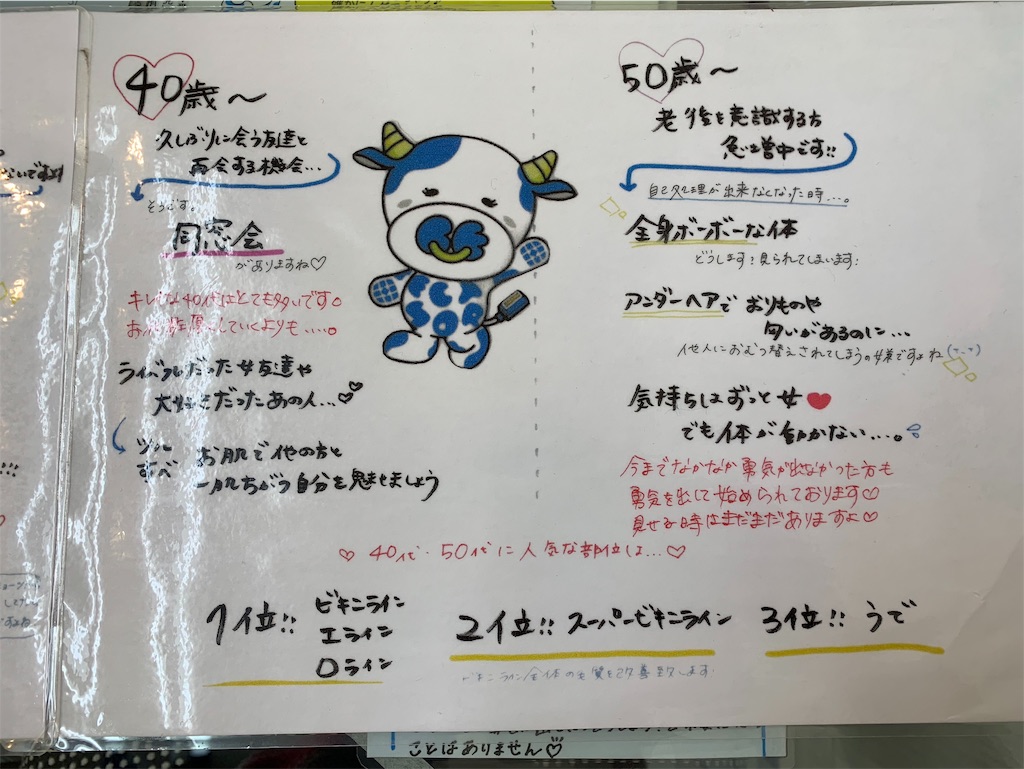 40歳〜
久しぶりに会う友達と
再会する機会…
そうです。
同窓会
がありますね♡
キレイな40代はとても多いです。
ライバルだった女友達や
大好きだったあの人…♡
ツル
すべ お肌で他の方と
一肌ちがう自分を魅せましょう
50歳〜
老後を意識する方
急増中です!!
自己処理が出来なくなった時…。
全身ボーボーな体
どうします?見られてしまいます…
アンダーヘアで おりものや
匂いがあるのに…
他人におむつ替えされてしまうの嫌ですよね
気持ちはずっと女♥
でも体が動かない…。
今までなかなか勇気が出なかった方も
勇気を出して始められております♡
見せる時はまだまだありますよ♡
♡ 40代・50代に人気な部位は…♡
1位!! ビキニライン
Iライン
Oライン
2位!! スーパービキニライン
3位!! うで
ビキニライン全体の
ことはありません♡